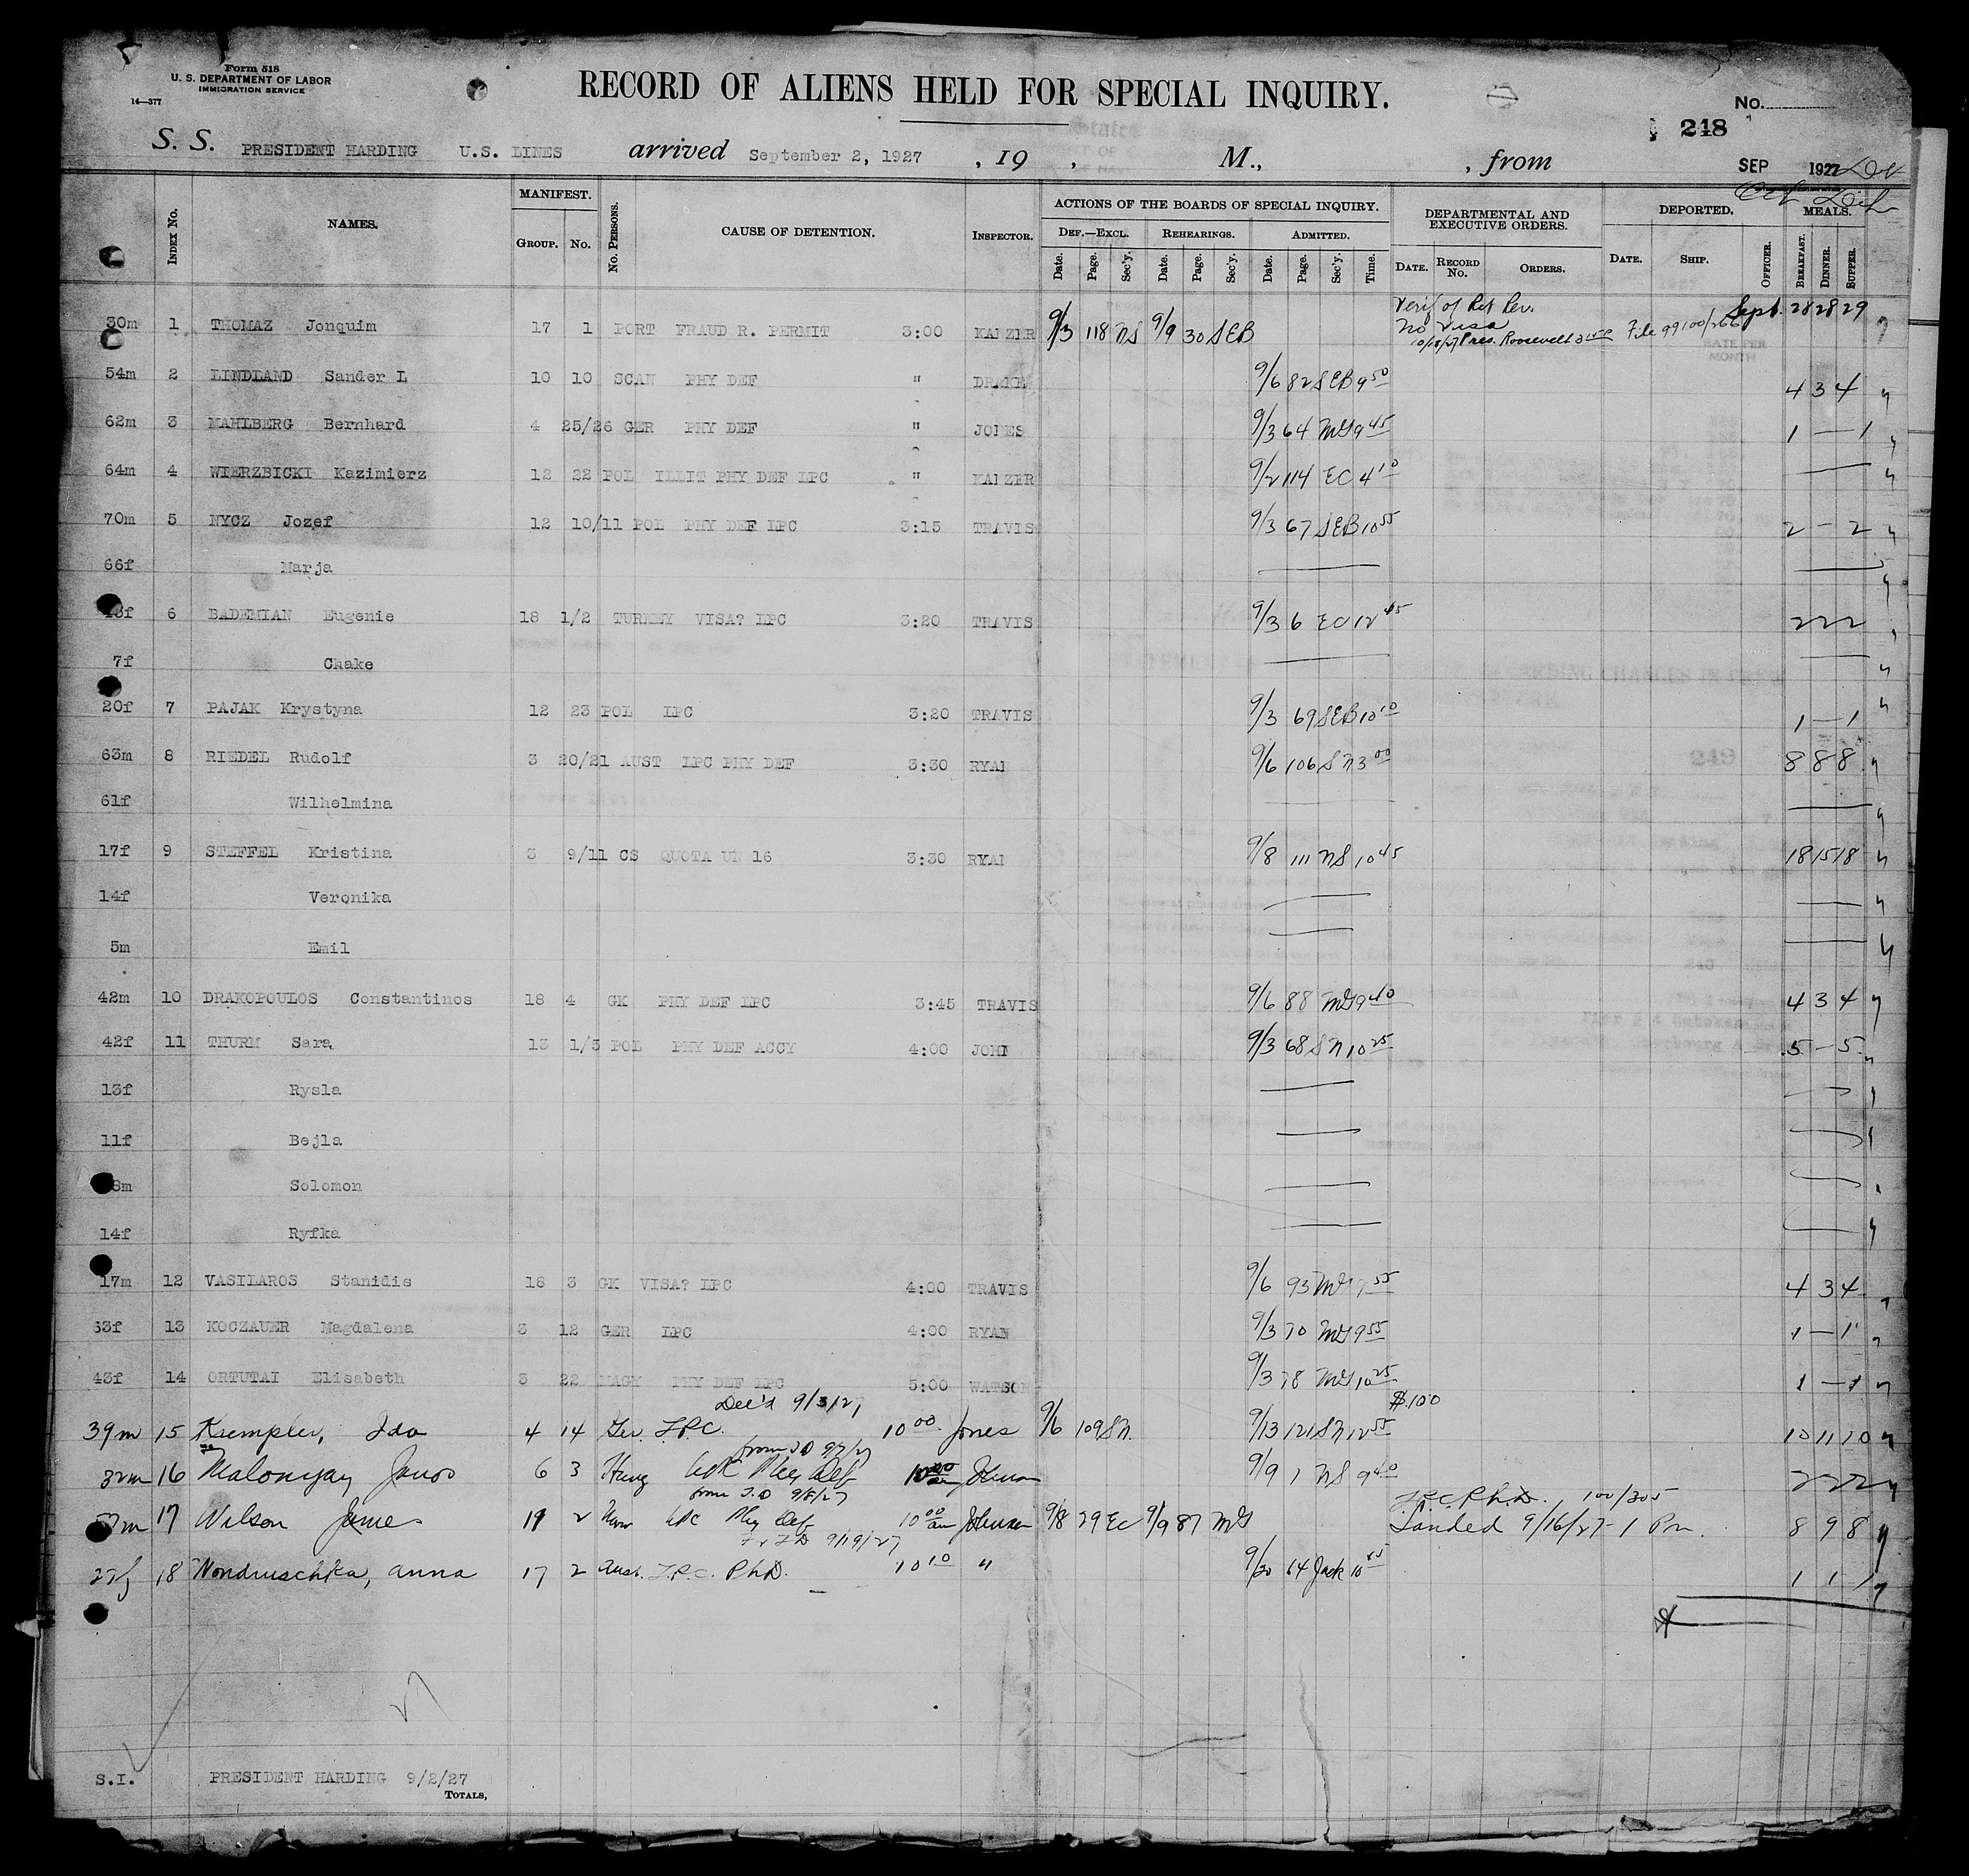 Form 518
U. S. DEPARTMENT OF LABOR
IMMIGRATION SERVICE
14—377
RECORD OF ALIENS HELD FOR SPECIAL INQUIRY.
No.
248
S. S. PRESIDENT HARDING U.S. LINES arrived September 2, 1927 , 19 , M., , from
SEP 1927
INDEX No. NAMES. MANIFEST. GROUP. No. No. PERSONS. CAUSE OF DETENTION. INSPECTOR.
ACTIONS OF THE BOARDS OF SPECIAL INQUIRY. DEF.—EXCL. Date. Page. Sec'y. REHEARINGS. Date. Page. Sec'y. ADMITTED. Date. Page. Sec'y. Time.
DEPARTMENTAL AND EXECUTIVE ORDERS. DATE. RECORD No. ORDERS. DEPORTED. DATE. SHIP. OFFICER. MEALS. BREAKFAST. DINNER. SUPPER.
30m 1 THOMAZ Jonquim 17 1 PORT FRAUD R. PERMIT 3:00 KANZER 9/3 118 NS 9/9 30 SEB No Visa Pres. Roosevelt File 99100/266 Sept. 28 28 29
54m 2 LINDLAND Sander L 10 10 SCAN PHY DEF " DRAKE 9/6 82 SEB 9 50 4 3 4
62m 3 MAHLBERG Bernhard 4 25/26 GER PHY DEF " JONES 9/3 64 MG 9 45 1 — 1
64m 4 WIERZBICKI Kazimierz 12 22 POL ILLIT PHY DEF LPC " KANZER 9/2 114 EC 4 10
70m 5 NYCZ Jozef 12 10/11 POL PHY DEF LPC 3:15 TRAVIS 9/3 67 SEB 10 55 2 — 2
66f Marja
6 BADEMIAN Eugenie 18 1/2 TURKEY VISA? LPC 3:20 TRAVIS 9/3 6 EC 12 45 2 2 2
7f Chake
20f 7 PAJAK Krystyna 12 23 POL LPC 3:20 TRAVIS 9/3 69 SEB 10 10 1 — 1
63m 8 RIEDEL Rudolf 3 20/21 AUST LPC PHY DEF 3:30 RYAN 9/6 106 SN 3 00 8 8 8
61f Wilhelmina
17f 9 STEFFEL Kristina 3 9/11 CS QUOTA UN 16 3:30 RYAN 9/8 111 NS 10 45 18 15 18
14f Veronika
5m Emil
42m 10 DRAKOPOULOS Constantinos 18 4 GK PHY DEF LPC 3:45 TRAVIS 9/6 88 MG 9 40 4 3 4
42f 11 THURM Sara 13 1/5 POL PHY DEF ACCY 4:00 JOHN 9/3 68 SN 10 25 5 — 5
13f Rysla
11f Bejla
8m Solomon
14f Ryfka
17m 12 VASILAROS Stanidis 18 3 GK VISA? LPC 4:00 TRAVIS 9/6 93 MG 55 4 3 4
63f 13 KOCZAUER Magdalena 3 12 GER LPC 4:00 RYAN 9/3 70 MG 9 55 1 — 1
43f 14 ORTUTAI Elisabeth 3 22 MAGY PHY DEF LPC 5:00 WATSON 9/3 78 MG 10 25 1 — 1
Dec'd 9/3/27 $100
39m 15 Kaempler, Ida 4 14 Ger. LPC. 10 00 Jones 9/6 109 SN. 9/13 121 SN 12 55 10 11 10
32m 16 Malonyay Janos 6 3 Hung LPC Phy Def 10 00 Johnson 9/9 1 NS 9 40 2 2 2
from S.D 9/8/27 LPC. Ph.D. 100/305
17 Wilson James 19 2 LPC Phy Def 10 00 am Johnson 9/8 29 EC 9/9 87 MG Landed 9/16/27 - 1 Pm. 8 9 8
9/19/27
22f 18 Wondruschka, Anna 17 2 Aust. L.P.C. Ph.D. 10 10 " 9/20 64 Jack 10 45 1 1 1
S.I. PRESIDENT HARDING 9/2/27
TOTALS,